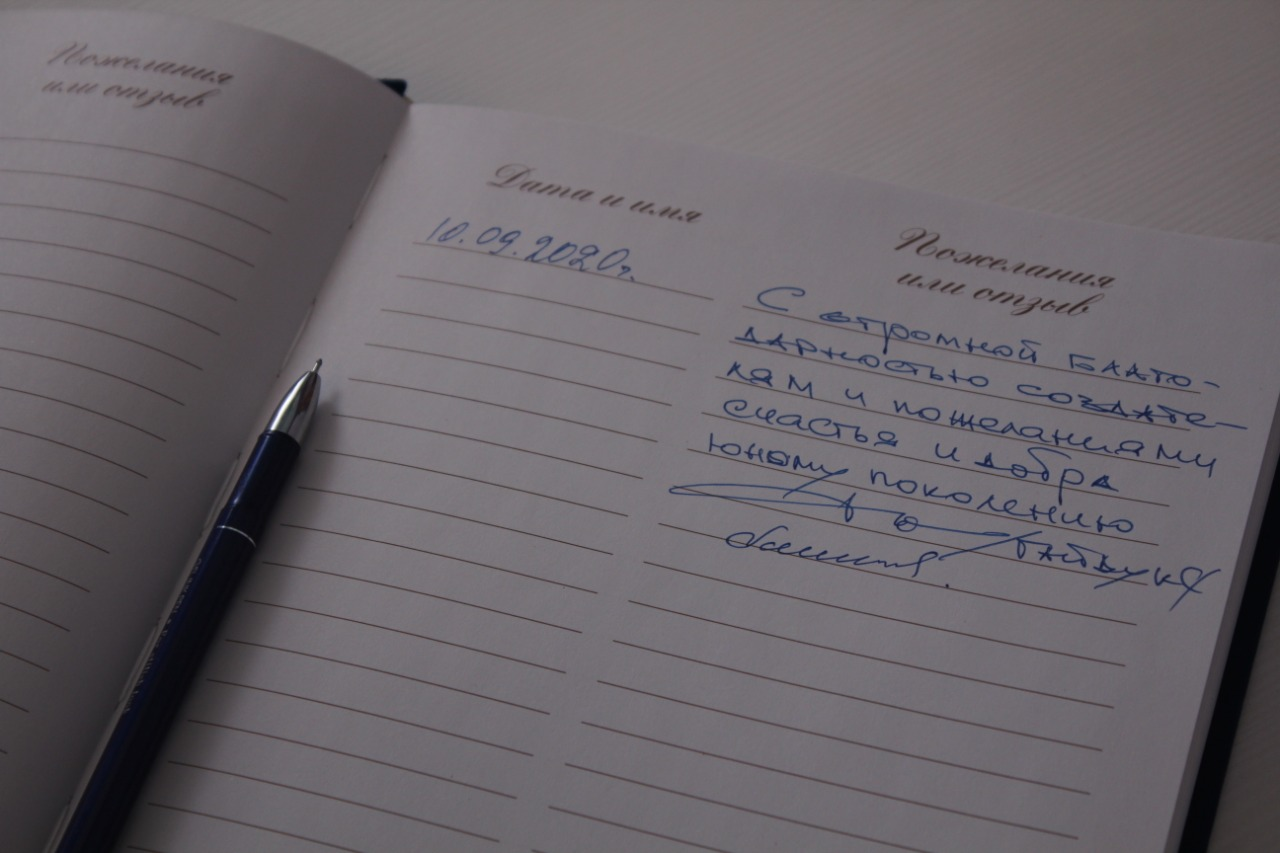 Пожелания
или отзыв
Дата и имя
10.09.2020г.
Пожелания
или отзыв
С огромной благо-
дарностью создате-
лям и пожеланиями
счастья и добра
юному поколению